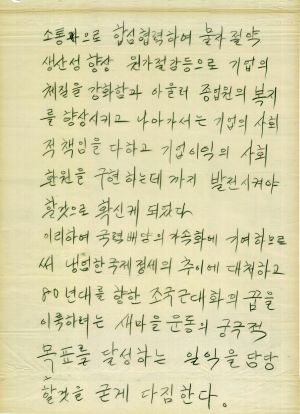 소통화으로 합심협력하여 물자절약
생산성 향상 원가절감등으로 기업의
체질을 강화함과 아울러 종업원의 복지
를 향상시키고 나아가서는 기업의 사회
적 책임을 다하고 기업이익의 사회
환원을 구현하는데 까지 발전시켜야
할것으로 확신케 되었다
이리하여 국력배양의 가속화에 기여하므로
써 냉엄한 국제정세의 추이에 대처하고
80년대를 향한 조국근대화의 꿈을
이룩하려는 새마을 운동의 궁극적
목표를 달성하는 일익을 담당
할것을 굳게 다짐한다.